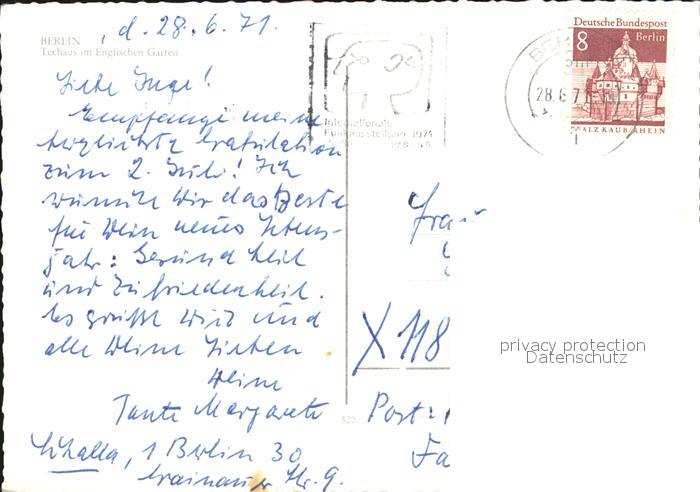 , d. 28.6.71.
BERLIN
Teehaus im Englischen Garten
Liebe Inge!
Empfange meine
herzlichste Gratulation
zum 2. Juli! Ich
wünsche Dir das Beste
für Dein neues Lebens-
jahr: Gesundheit
und Zufriedenheit.
Es grüßt Dich und
alle Deine Lieben
Deine
Tante Margarete
1 Berlin 30
Str. 9.
Internationale
Funkausstellung 1971
27.8.-5.9.
28.6.71
Deutsche Bundespost
8 Berlin
PFALZ KAUB/RHEIN
Frau
X 118
322
Post:
privacy protection
Datenschutz